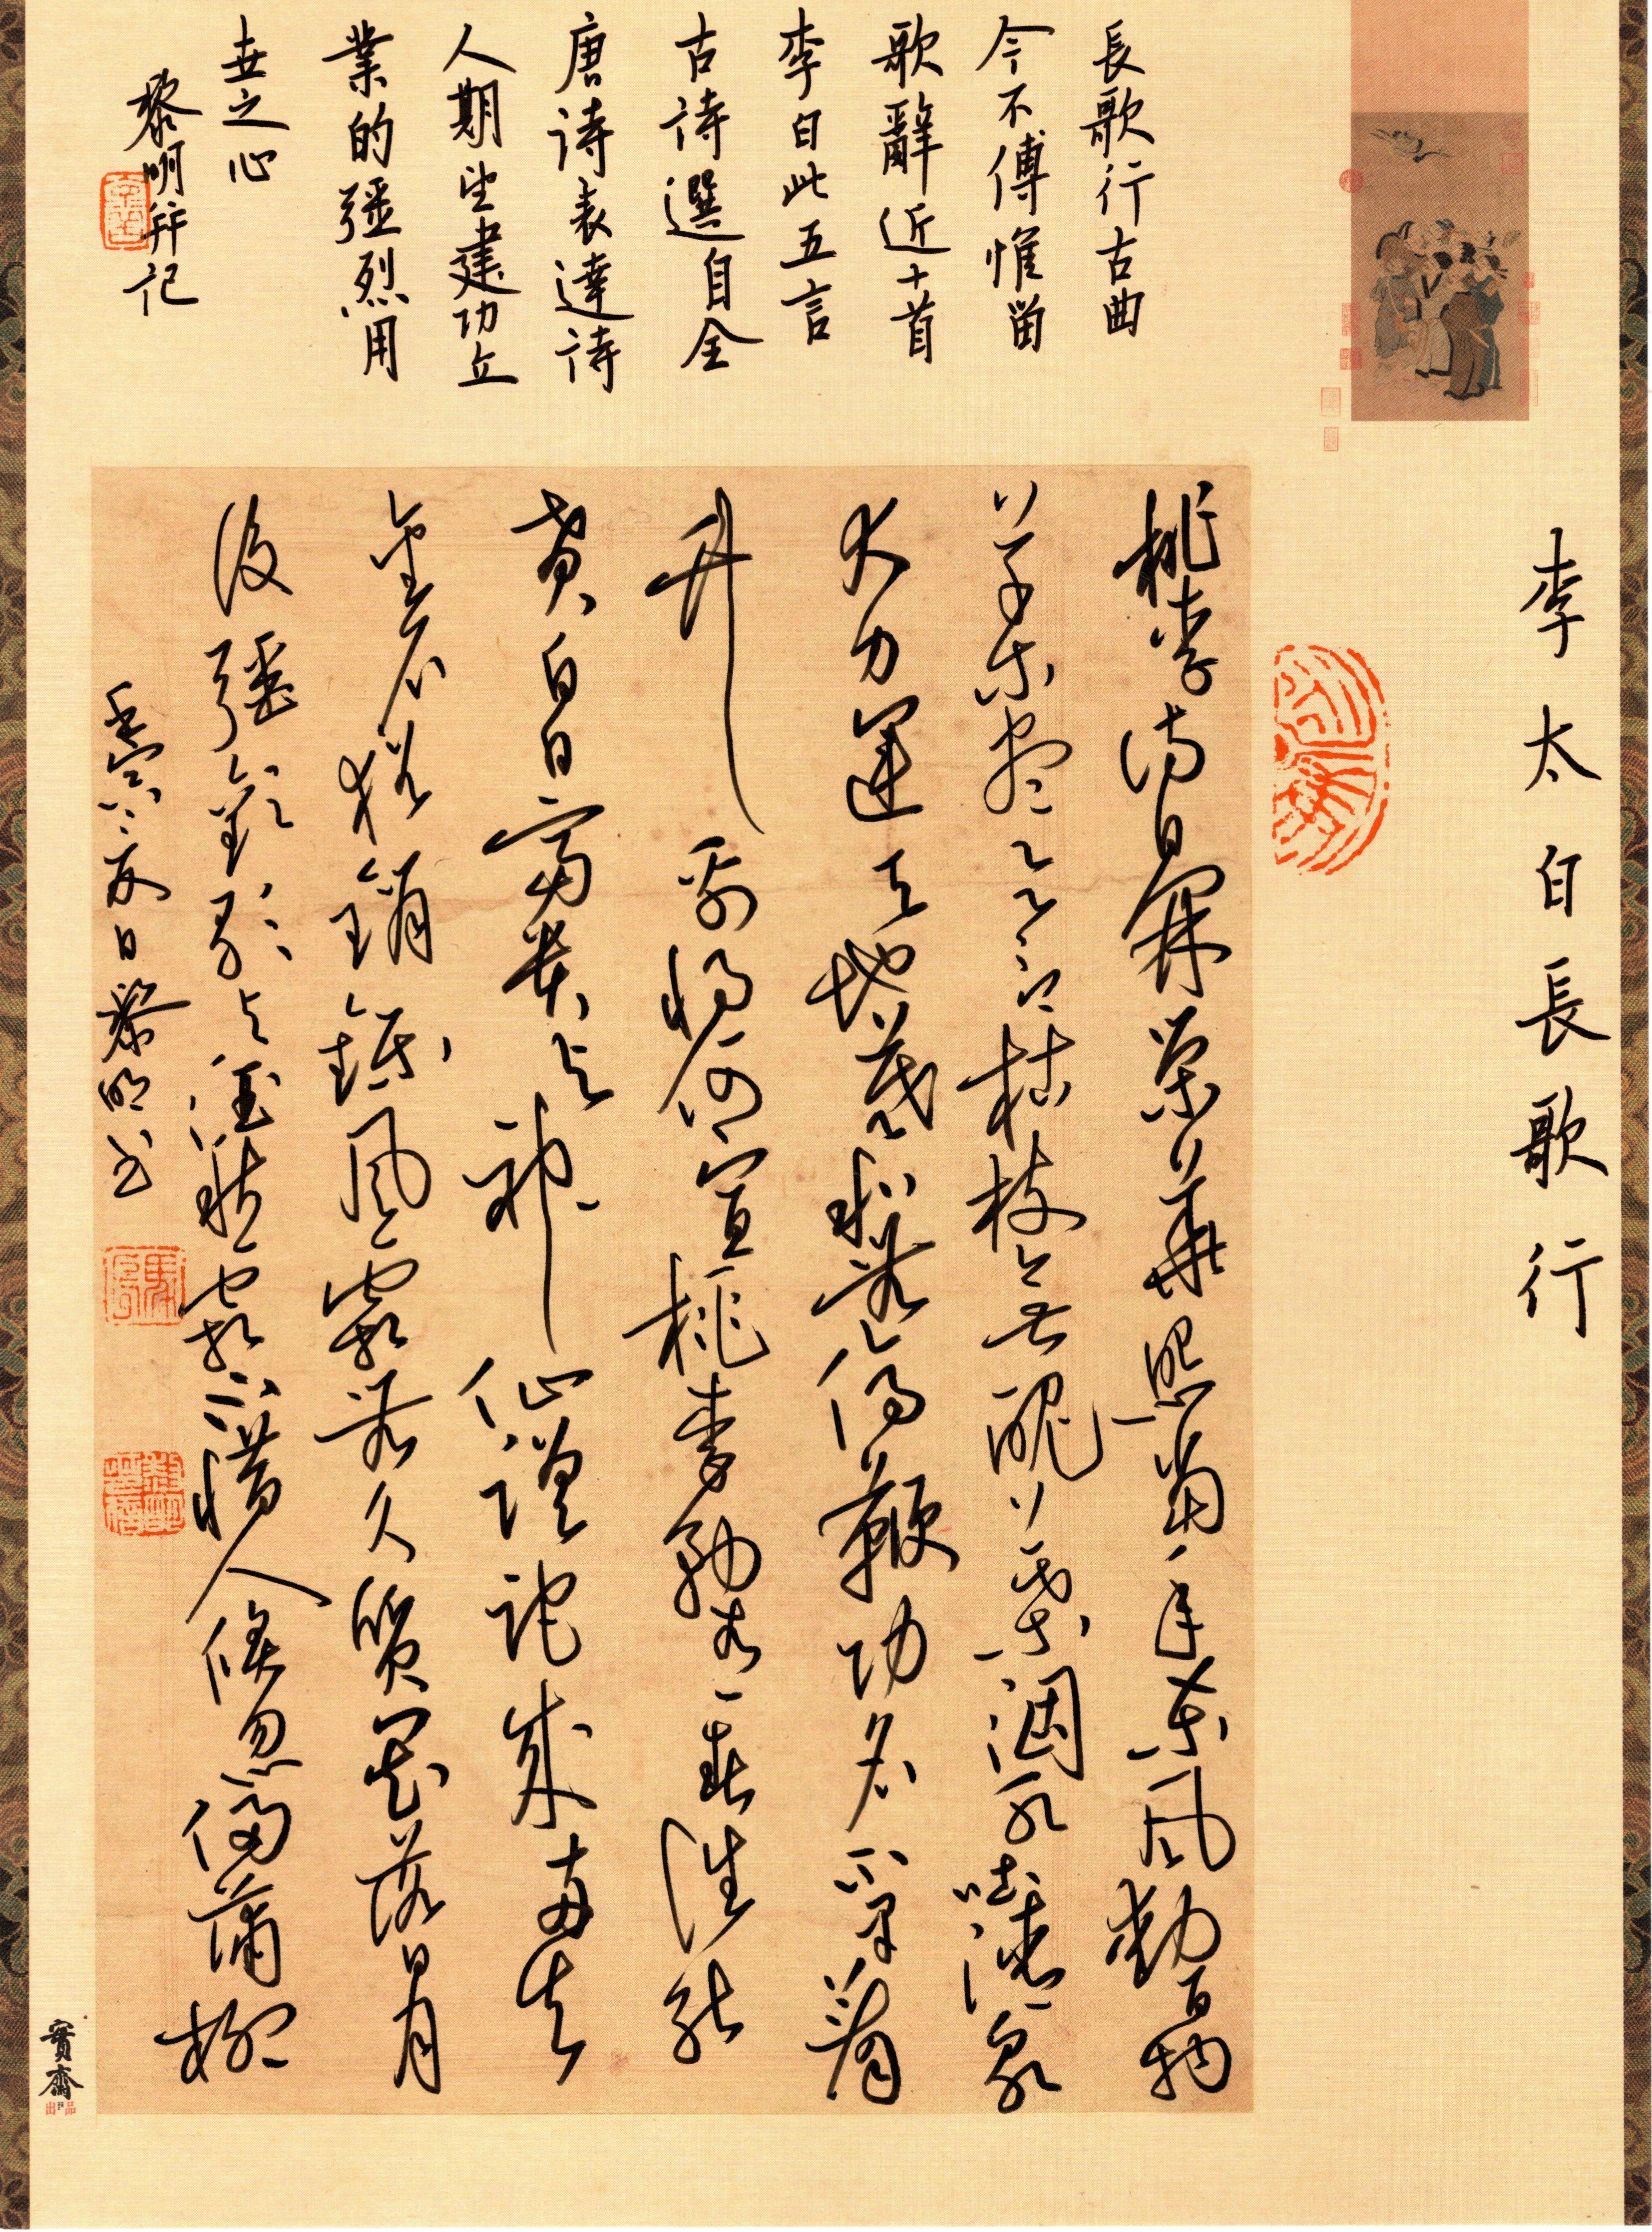 李太白長歌行
長歌行古曲
今不傳惟留
歌辭近十首
李白此五言
古詩選自全
唐詩表達詩
人期望建功立
業的彊烈用
世之心
黎明并記
桃李得日開榮華照當年東風動百物
草木盡欲言枯枝無醜葉涸水吐清泉
大力運天地羲和無停鞭功名不早著
竹帛將何宣桃李務青春誰能
貰白日富貴與神仙蹉跎成兩失
金石猶銷鑠風霜無久質畏落日月
後彊歡歌與酒秋霜不惜人倏忽侵蒲柳
壬寅夏日黎明書
寶齋
出品